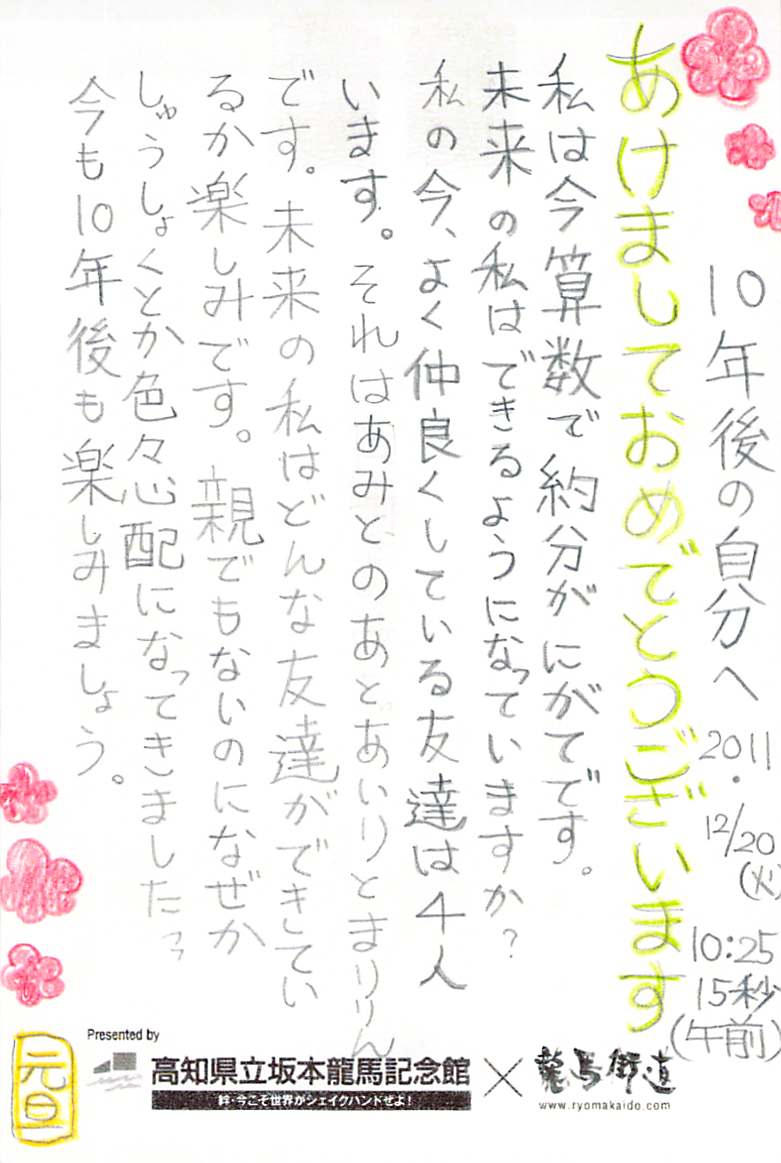 10年後の自分へ
2011.
12/20
(火)
10:25
15秒
(午前)
あけましておめでとうございます
私は今算数で約分がにがてです。
未来の私はできるようになっていますか?
私の今、よく仲良くしている友達は4人
います。それはあみとのあとあいりとまりりん
です。未来の私はどんな友達ができてい
るか楽しみです。親でもないのになぜか
しゅうしょくとか色々心配になってきましたっ
今も10年後も楽しみましょう。
元旦
Presented by
高知県立坂本龍馬記念館 × 龍馬街道
絆・今こそ世界がシェイクハンドぜよ!
www.ryomakaido.com